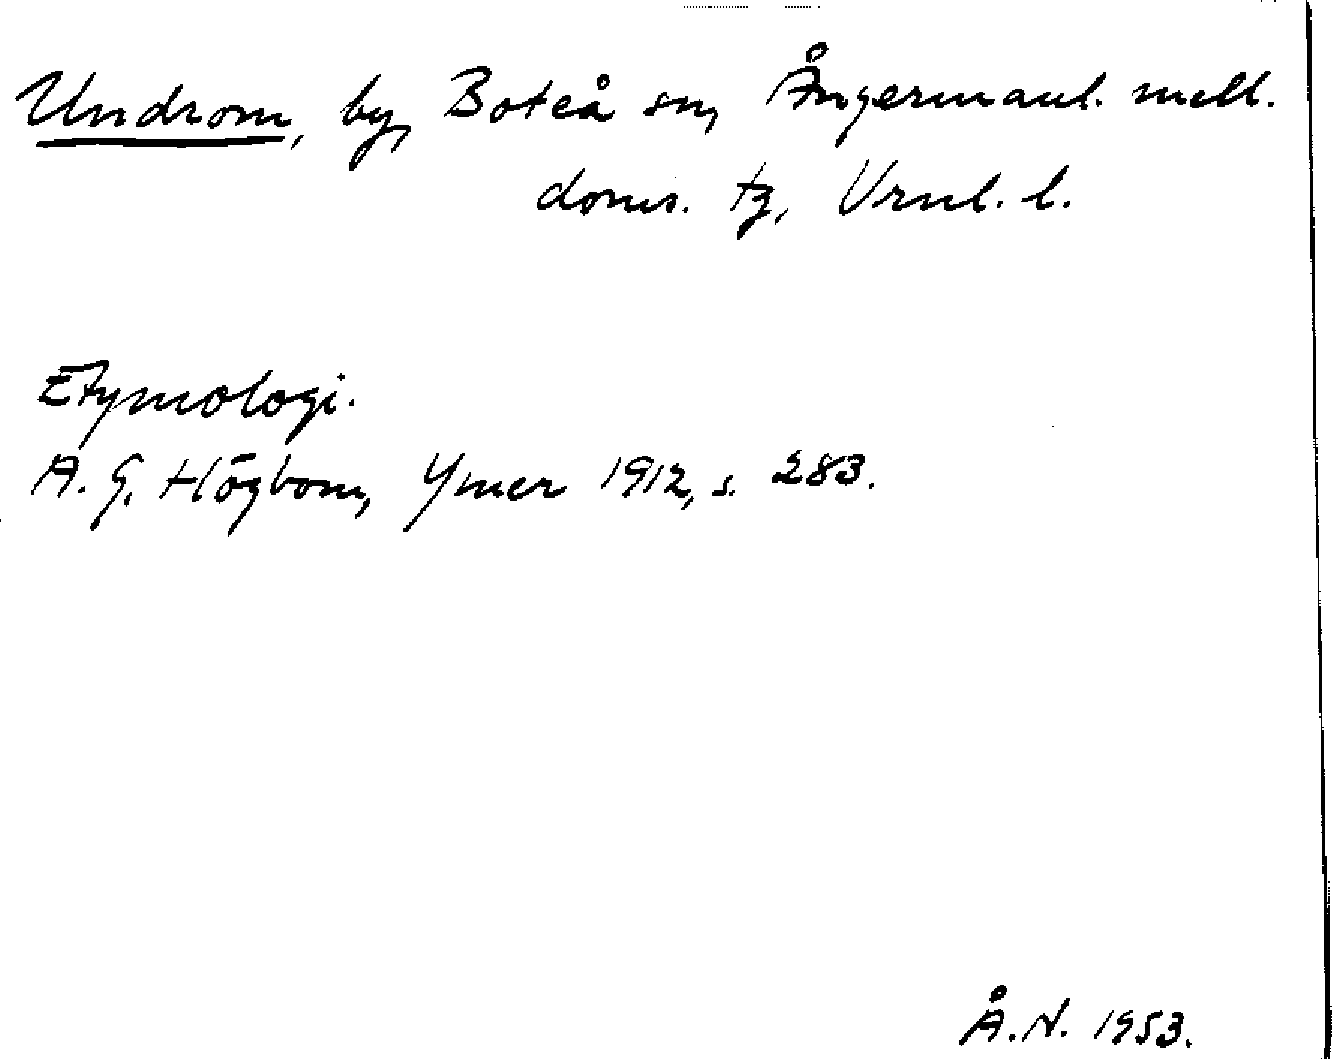 Undrom, by, Boteå sn, Ångermanl. mell.
doms. tg, Vrnl. l.
Etymologi.
A. G. Högbom, Ymer 1912, s. 283.
Å.N. 1953.